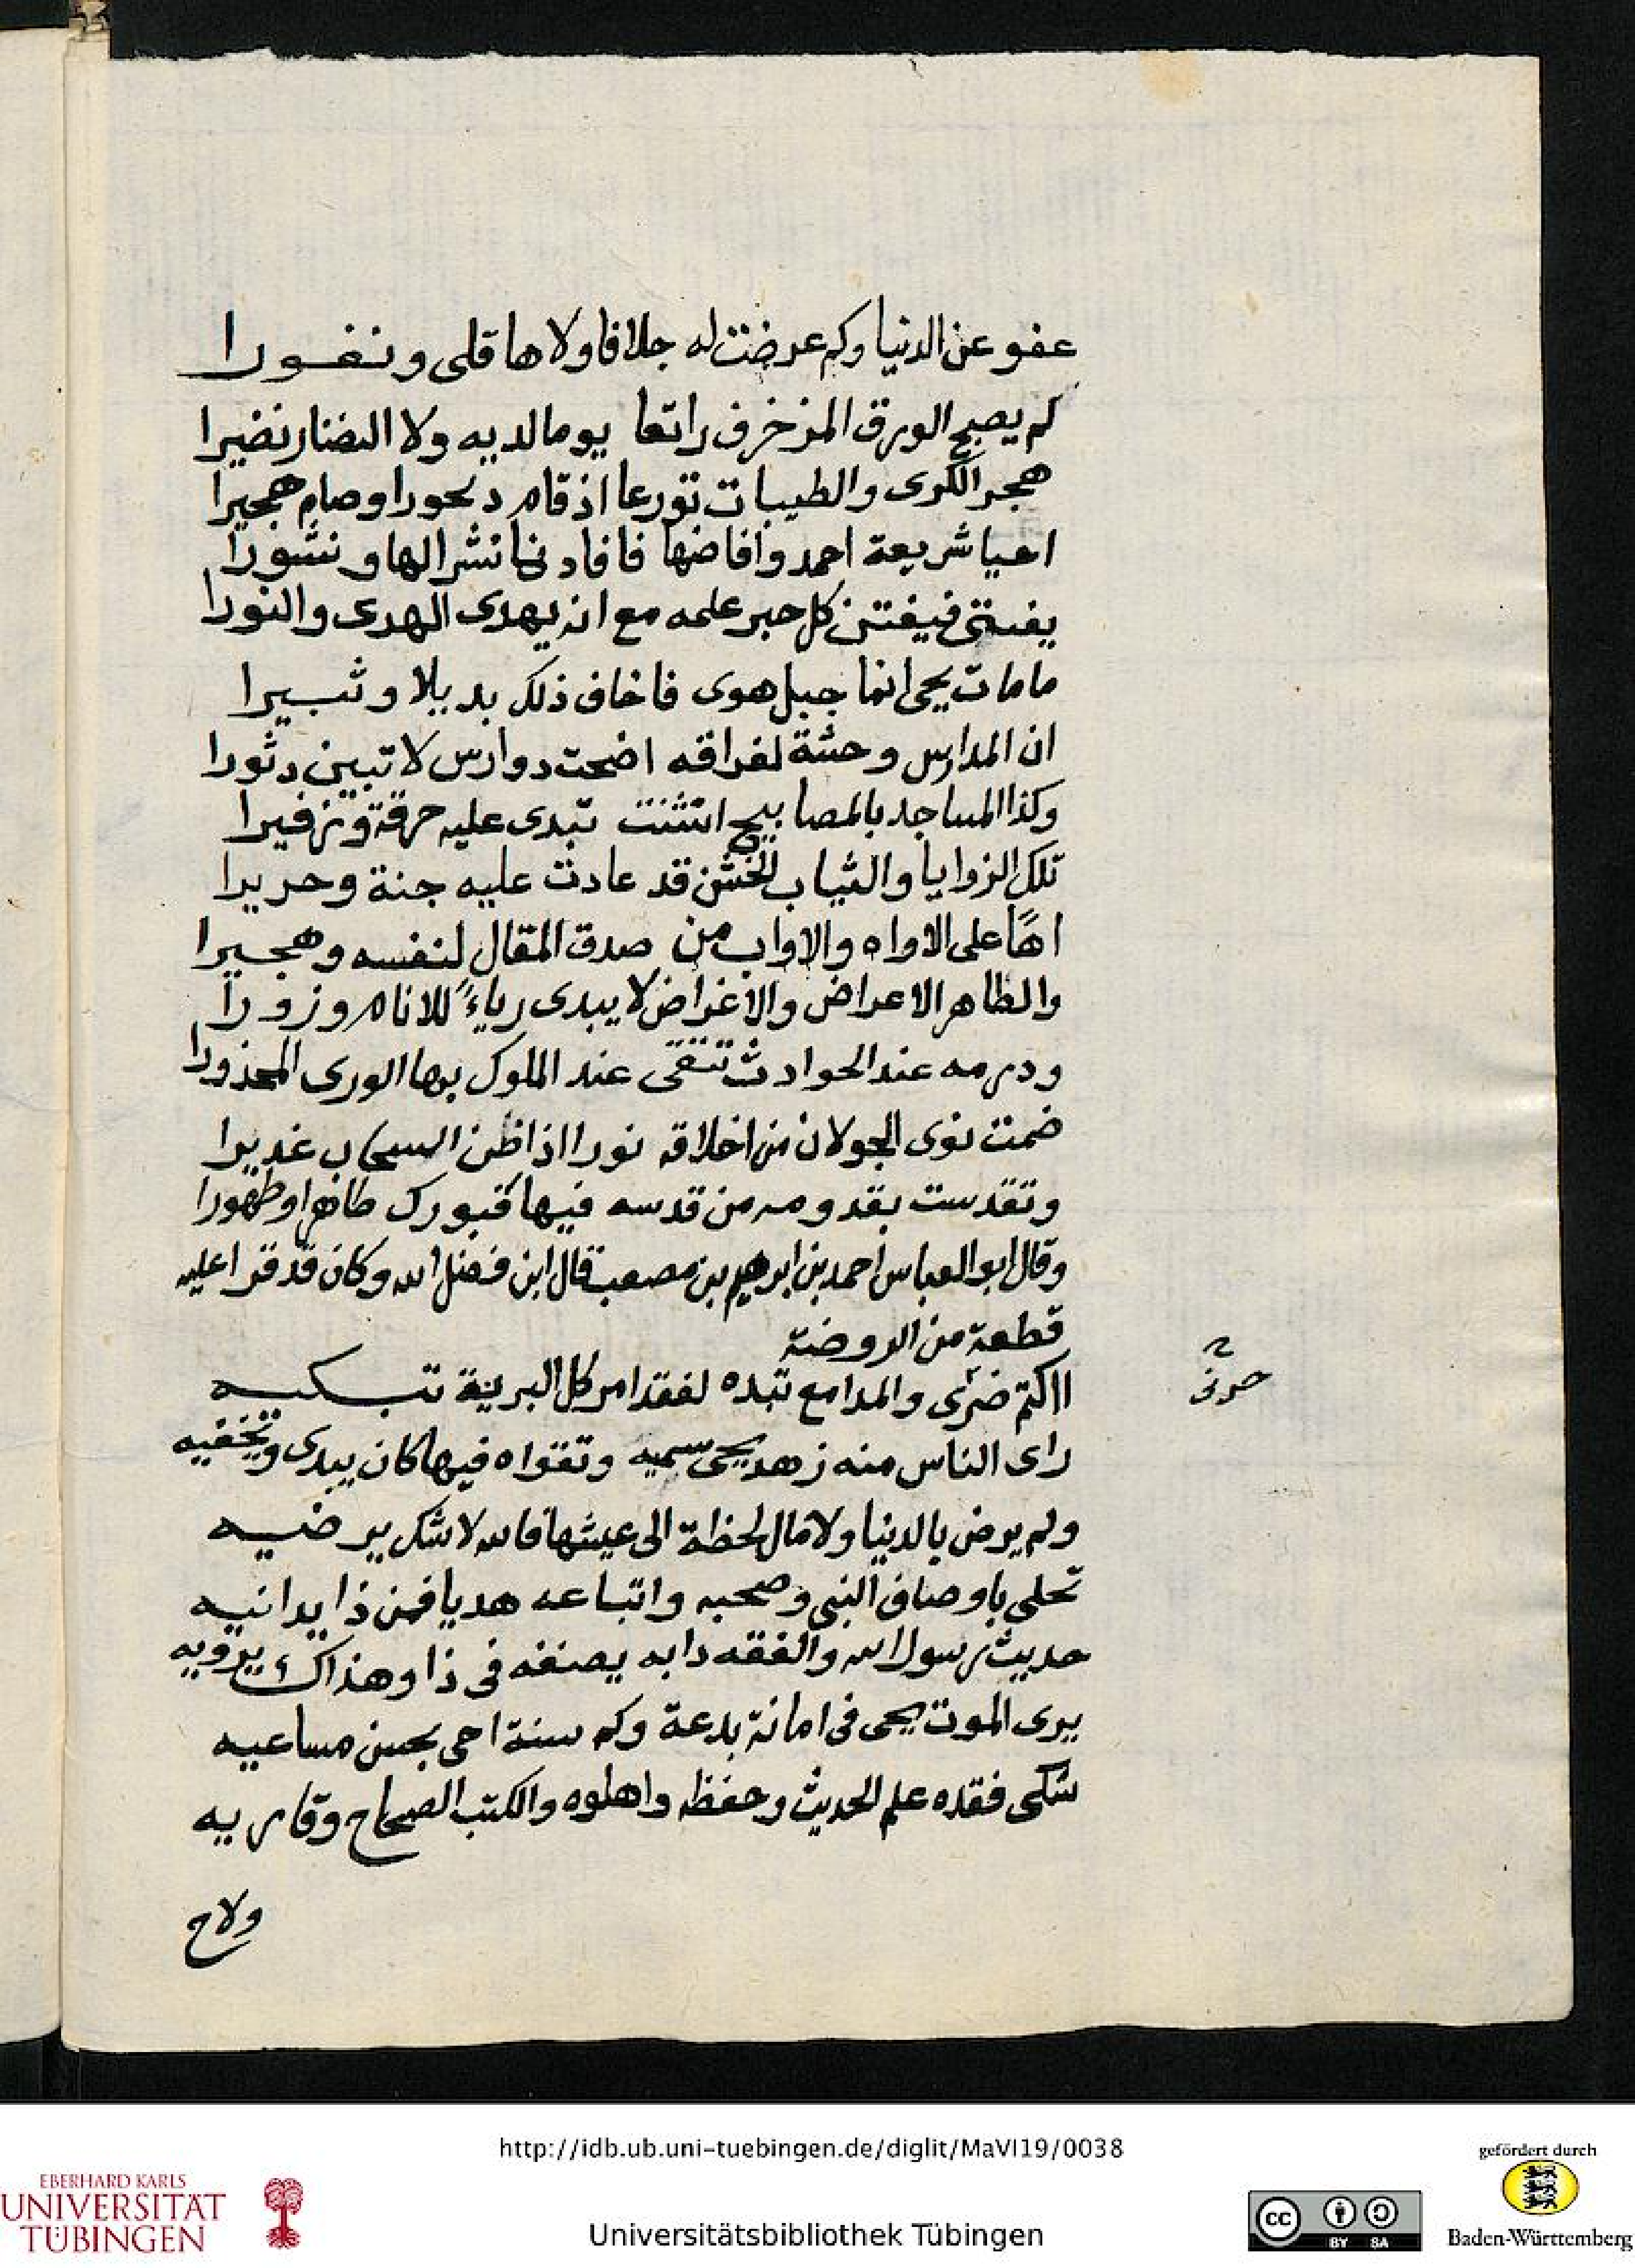 عفو عن الدنيا وكم عرضت له جلافا ولاها قلى ونفورا
لم يصبح الورق المزخرف رائعا يوما لديه ولا النضار نضيرا
هجر الكرى والطيبات تورعا اذ قام ديحورا وصام هجيرا
احيا شريعة احمد وافاضها فافادنا نشرا لها ونشورا
يفتى فيفتن كل حبر علمه مع انه يهدى الهدى والنورا
ما مات يحيى انما جبل هوى فاخاف ذلك يدبلا وثبيرا
ان المدارس وحشة لفراقه اضحت دوارس لا تبين دثورا
وكذا المساجد بالمصابيح انثنت تبدى عليه حرقة وزفيرا
تلك الزوايا والثياب الخشن قد عادت عليه جنة وحريرا
اهًا على الاواه والاواب من صدق المقال لنفسه وهجيرا
والطاهر الاعراض والاغراض لا يبدى رياءً للانام وزورا
ودرمه عند الحوادث تتقى عند الملوك بها الورى المحذورا
ضمنت نوى الجولان من اخلاقه نورا اذا ظن السحاب غديرا
وتقدست بقدومه من قدسه فيها فبورك طاهرا وطهورا
وقال ابو العباس احمد بن ابرهيم بن مصعب قال ابن فضل الله وكان قد قرا عليه
قطعة من الروضة
ااكتم ضرى والمدامع تبده لفقد امر كل البرية تبكيه
راى الناس منه زهد يحيى سميه وتقواه فيها كان يبدى وتخفيه
ولم يرض بالدنيا ولا مال لحظة الى عيشها فالله لا شك يرضيه
تحلى باوصاف النبى وصحبه واتباعه هديا فمن ذا يدانيه
حديث رسول الله والفقه دابه يصنفه فى ذا وهذاك يرويه
يرى الموت يحى فى امانة بدعة وكم سنة احى بحسن مساعيه
شكى فقده علم الحديث وحفظه واهلوه والكتب الصحاح وقاريه
ولاح
حزنى
http://idb.ub.uni-tuebingen.de/diglit/MaVI19/0038
Universitätsbibliothek Tübingen
EBERHARD KARLS
UNIVERSITÄT
TÜBINGEN
cc BY SA
gefördert durch
Baden-Württemberg